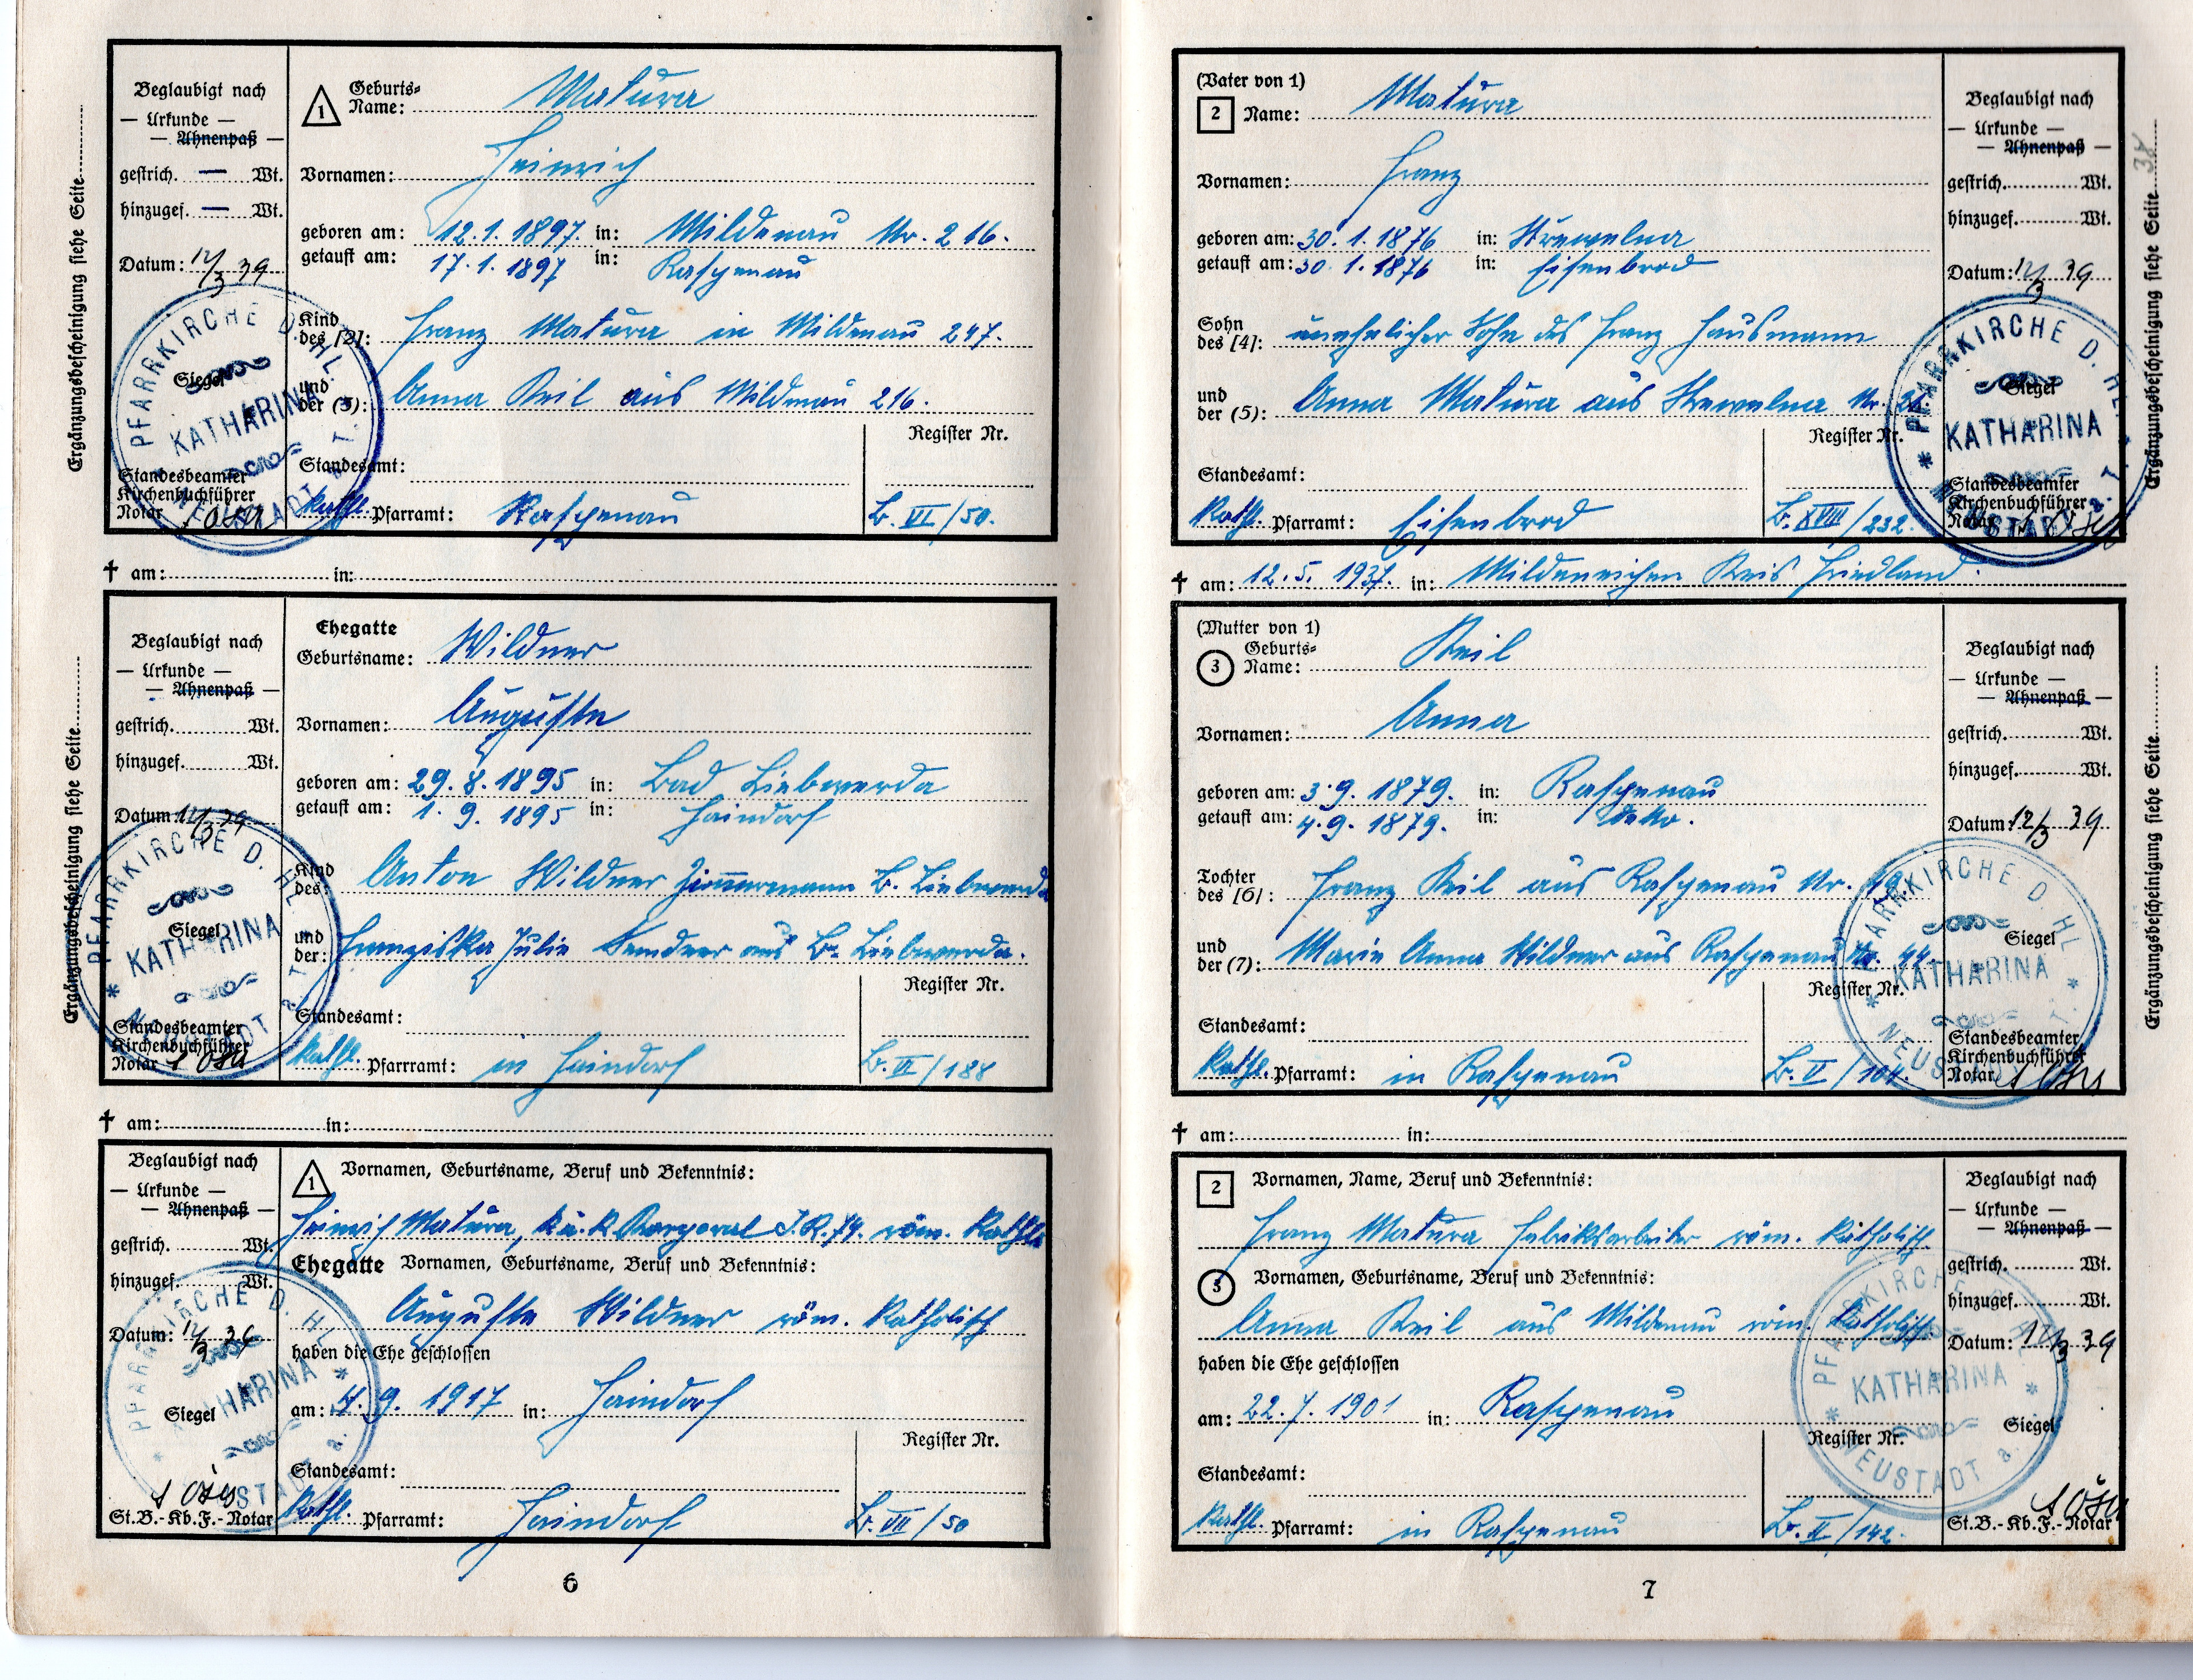 Ergänzungsbescheinigung siehe Seite
Beglaubigt nach
— Urkunde —
— Ahnenpaß —
gestrich. — Wt.
hinzugef. — Wt.
Datum: 12/3 39
Siegel
Standesbeamter
Kirchenbuchführer
Notar
PFARRKIRCHE D. HL. KATHARINA * NEUSTADT a. T. *
1 Geburts-Name: Matura
Vornamen: Heinrich
geboren am: 12.1.1897. in: Mildenau Nr. 216.
getauft am: 17.1.1897 in: Raspenau
Kind des [2]: Franz Matura in Mildenau 247.
und der (3): Anna Keil aus Mildenau 216.
Register Nr.
Standesamt:
Kathl. Pfarramt: Raspenau B. VI/50.
† am: in:
Ergänzungsbescheinigung siehe Seite
Beglaubigt nach
— Urkunde —
— Ahnenpaß —
gestrich. Wt.
hinzugef. Wt.
Datum: 12/3 39
Siegel
Standesbeamter
Kirchenbuchführer
Notar
PFARRKIRCHE D. HL. KATHARINA * NEUSTADT a. T. *
Ehegatte
Geburtsname: Wildner
Vornamen: Auguste
geboren am: 29.8.1895 in: Bad Liebwerda
getauft am: 1.9.1895 in: Haindorf
Kind des: Anton Wildner Zimmermann B. Liebwerda
und der: Franziska Julie aus B. Liebwerda.
Register Nr.
Standesamt:
Kathl. Pfarramt: in Haindorf B. VI/188
† am: in:
Beglaubigt nach
— Urkunde —
— Ahnenpaß —
gestrich. Wt.
hinzugef. Wt.
Datum: 12/3 39
Siegel
St.B.-Kb.F.-Notar
PFARRKIRCHE D. HL. KATHARINA * NEUSTADT a. T. *
1 Vornamen, Geburtsname, Beruf und Bekenntnis:
Heinrich Matura, k.u.k Korporal I.R. 74. röm. Kathl.
Ehegatte Vornamen, Geburtsname, Beruf und Bekenntnis:
Auguste Wildner röm. Katholisch
haben die Ehe geschlossen
am: 4.9.1917 in: Haindorf
Register Nr.
Standesamt:
Kathl. Pfarramt: Haindorf B. VII/50
6
(Vater von 1)
2 Name: Matura
Vornamen: Franz
geboren am: 30.1.1876 in: Strewelna
getauft am: 30.1.1876 in: Eisenbrod
Sohn des [4]: unehelicher Sohn des Franz Hausmann
und der (5): Anna Matura aus Strewelna Nr.
Register Nr.
Standesamt:
Kathl. Pfarramt: Eisenbrod B. XVIII/232.
Beglaubigt nach
— Urkunde —
— Ahnenpaß —
gestrich. Wt.
hinzugef. Wt.
Datum: 12/3 39
Siegel
Standesbeamter
Kirchenbuchführer
Notar
PFARRKIRCHE D. HL. KATHARINA * NEUSTADT a. T. *
Ergänzungsbescheinigung siehe Seite 38
† am: 12.5.1937. in: Mildeneichen Kreis Friedland.
(Mutter von 1)
3 Geburts-Name: Keil
Vornamen: Anna
geboren am: 3.9.1879. in: Raspenau
getauft am: 4.9.1879. in: detto.
Tochter des [6]: Franz Keil aus Raspenau Nr.
und der (7): Marie Anna Wildner aus Raspenau Nr. 44
Register Nr.
Standesamt:
Kathl. Pfarramt: in Raspenau B. V/104.
Beglaubigt nach
— Urkunde —
— Ahnenpaß —
gestrich. Wt.
hinzugef. Wt.
Datum: 12/3 39
Siegel
Standesbeamter
Kirchenbuchführer
Notar
PFARRKIRCHE D. HL. KATHARINA * NEUSTADT a. T. *
Ergänzungsbescheinigung siehe Seite
† am: in:
2 Vornamen, Name, Beruf und Bekenntnis:
Franz Matura Fabriksarbeiter röm. Katholisch.
3 Vornamen, Geburtsname, Beruf und Bekenntnis:
Anna Keil aus Mildenau röm. Katholisch
haben die Ehe geschlossen
am: 22.7.1901 in: Raspenau
Register Nr.
Standesamt:
Kathl. Pfarramt: in Raspenau B. II/142.
Beglaubigt nach
— Urkunde —
— Ahnenpaß —
gestrich. Wt.
hinzugef. Wt.
Datum: 12/3 39
Siegel
St.B.-Kb.F.-Notar
PFARRKIRCHE D. HL. KATHARINA * NEUSTADT a. T. *
7